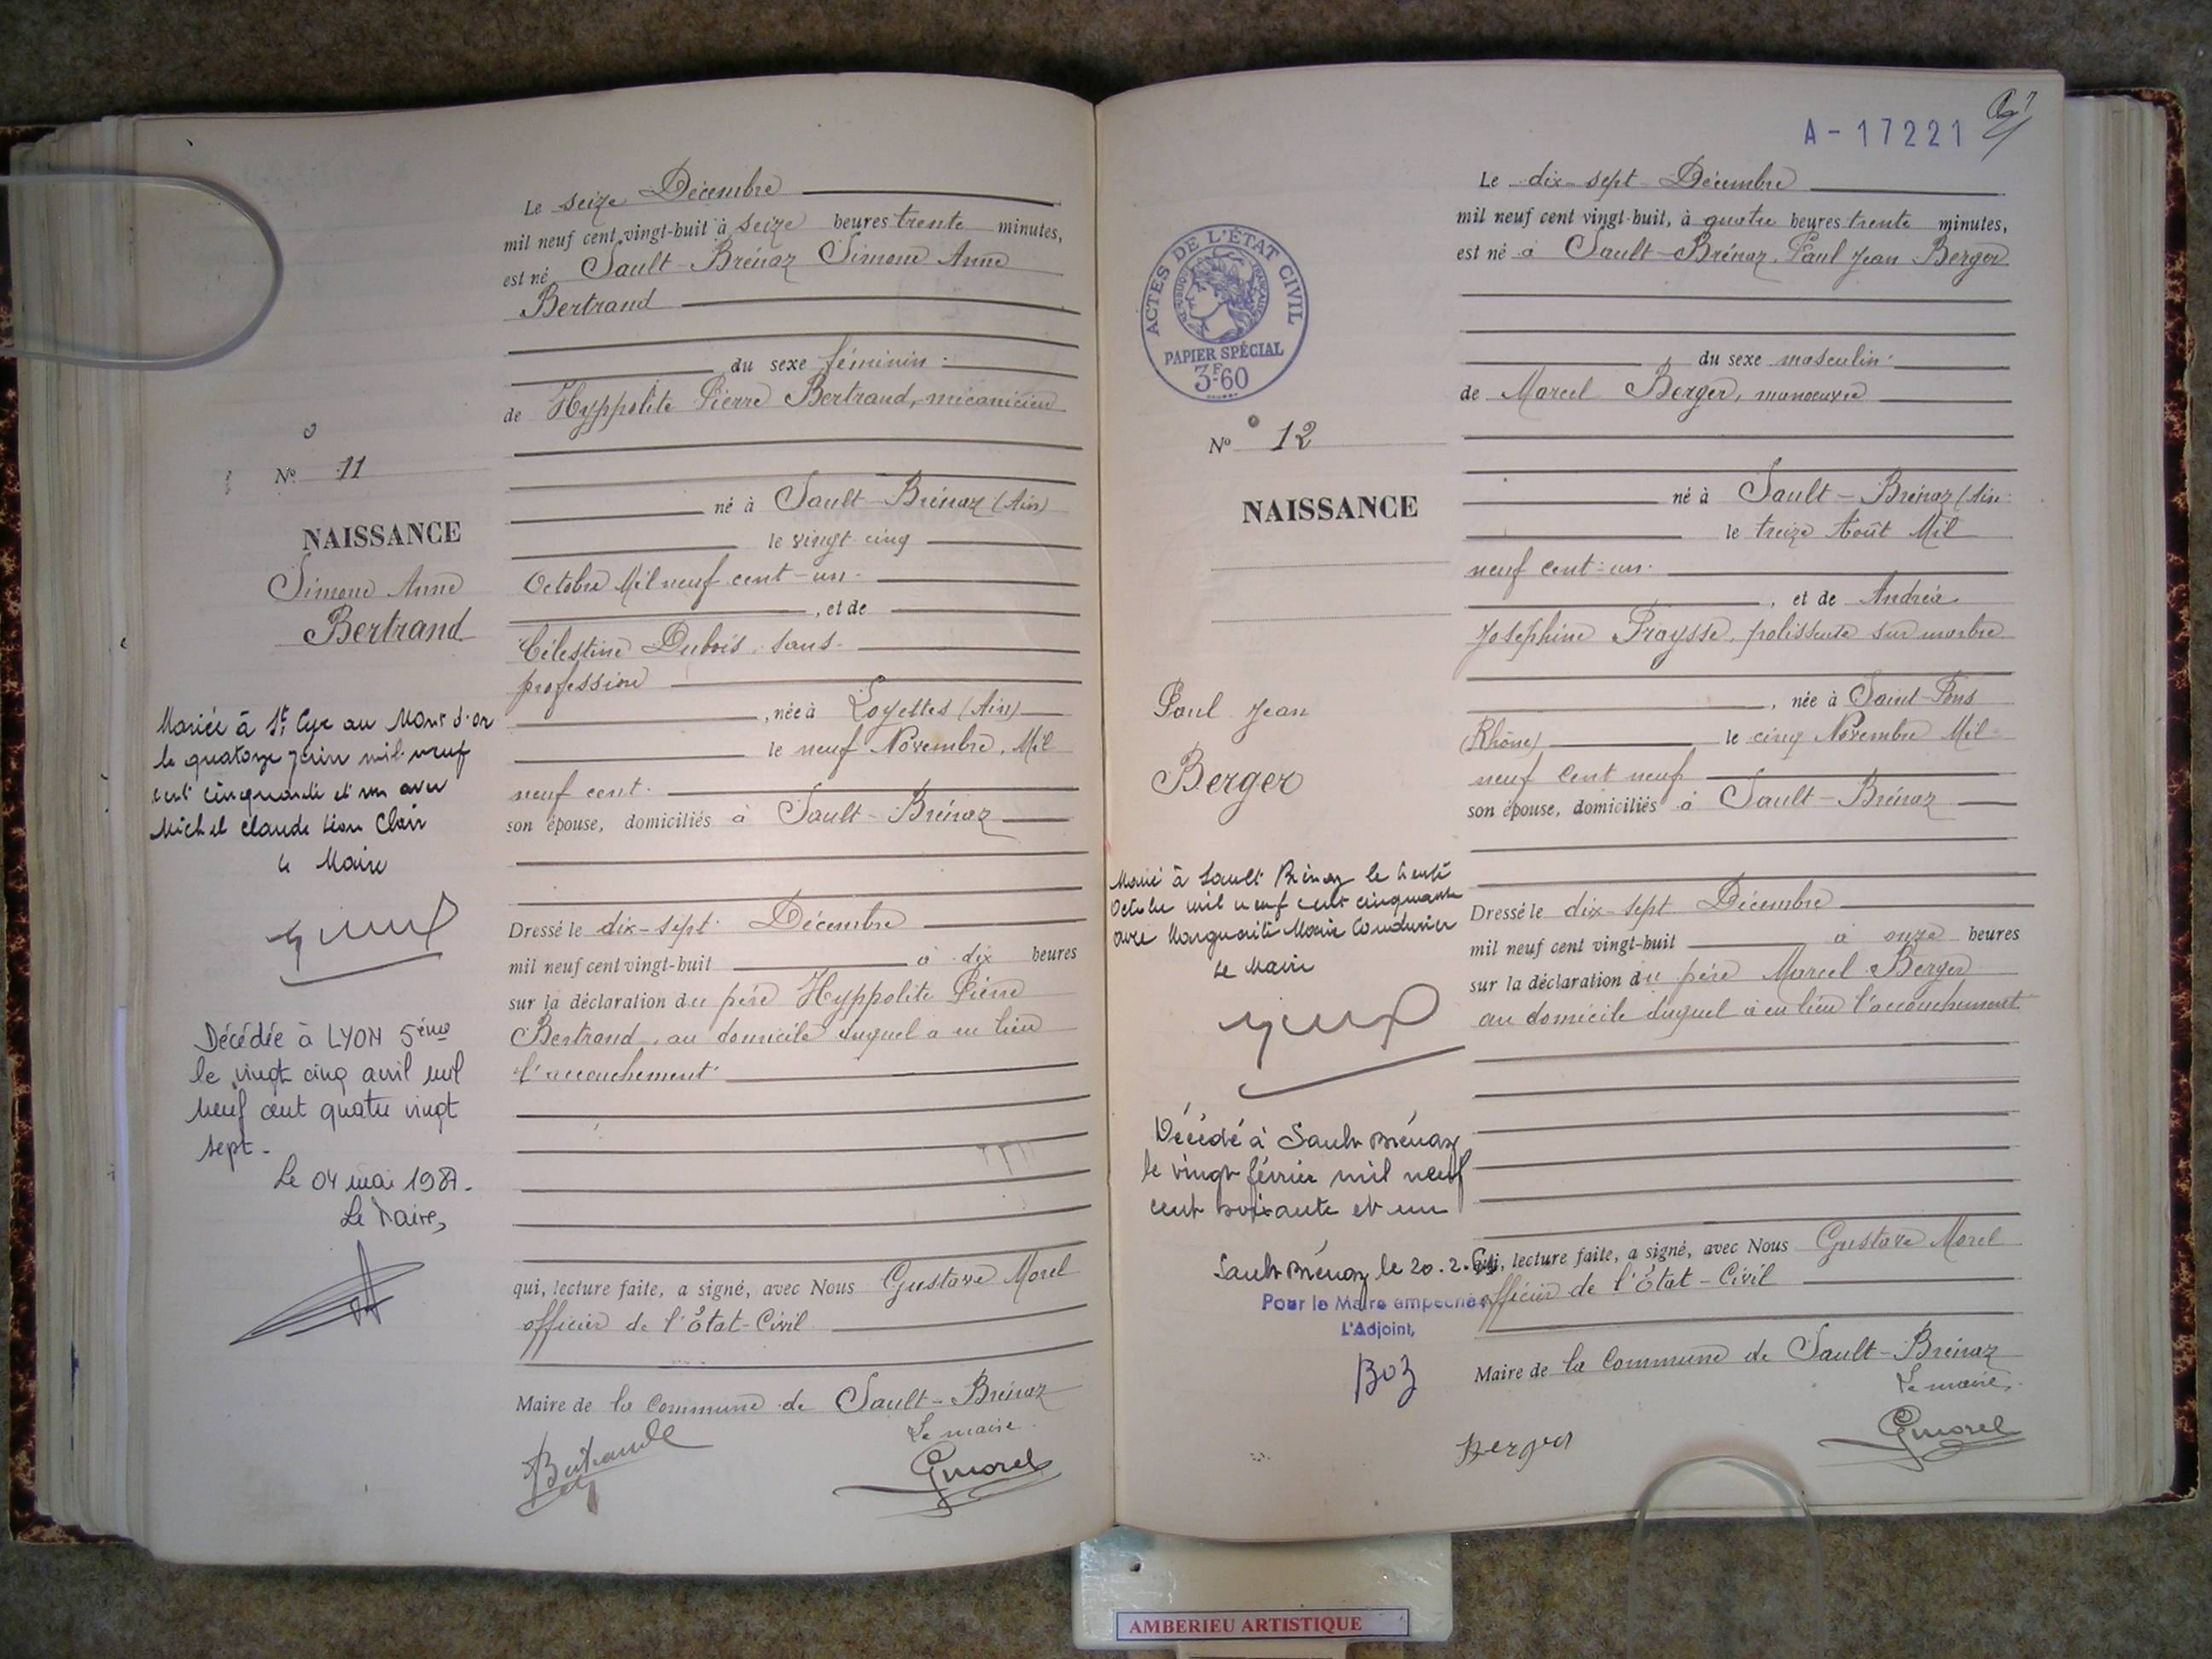 Le seize Décembre
mil neuf cent vingt-huit à seize heures trente minutes,
est né Sault-Brénaz Simone Anne
Bertrand
du sexe féminin
de Hyppolite Pierre Bertrand, mécanicien
né à Sault-Brénaz (Ain)
le vingt cinq
Octobre Mil neuf cent-un
, et de
Célestine Dubois, sans
profession
, née à Loyettes (Ain)
le neuf Novembre, Mil
neuf cent
son épouse, domiciliés à Sault-Brénaz
Dressé le dix-sept Décembre
mil neuf cent vingt-huit à dix heures
sur la déclaration du père Hyppolite Pierre
Bertrand, au domicile duquel a eu lieu
l'accouchement
qui, lecture faite, a signé, avec Nous Gustave Morel
officier de l'État-Civil
Maire de la Commune de Sault-Brénaz
Le maire
Bertrand
GMorel
No 11
NAISSANCE
Simone Anne
Bertrand
Mariée à St Cyr au Mont d'or
le quatorze juin mil neuf
cent cinquante et un avec
Michel Claude Léon Clair
Le Maire
Décédée à LYON 5ème
le vingt cinq avril mil
neuf cent quatre vingt
sept.
Le 04 mai 1987.
Le Maire,
A-17221
Le dix-sept Décembre
mil neuf cent vingt-huit, à quatre heures trente minutes,
est né à Sault-Brénaz, Paul Jean Berger
du sexe masculin
de Marcel Berger, manoeuvre
né à Sault-Brénaz (Ain
le treize Août Mil
neuf cent-un
, et de Andréa
Joséphine Praysse, polisseuse sur marbre
, née à Saint-Fons
(Rhône) le cinq Novembre Mil
neuf cent neuf
son épouse, domiciliés à Sault-Brénaz
Dressé le dix-sept Décembre
mil neuf cent vingt-huit à onze heures
sur la déclaration du père Marcel Berger
au domicile duquel a eu lieu l'accouchement
qui, lecture faite, a signé, avec Nous Gustave Morel
officier de l'État-Civil
Maire de la Commune de Sault-Brénaz
Le maire,
Berger
GMorel
ACTES DE L'ÉTAT CIVIL
RÉPUBLIQUE FRANÇAISE
PAPIER SPÉCIAL
3F60
No 12
NAISSANCE
Paul Jean
Berger
Marié à Sault Brénaz le trente
Octobre mil neuf cent cinquante
avec Marguerite Marie
Le Maire
Décédé à Sault Brénaz
le vingt février mil neuf
cent soixante et un
Sault Brénaz le 20.2.
Pour le Maire empêché
L'Adjoint,
Boz
AMBERIEU ARTISTIQUE